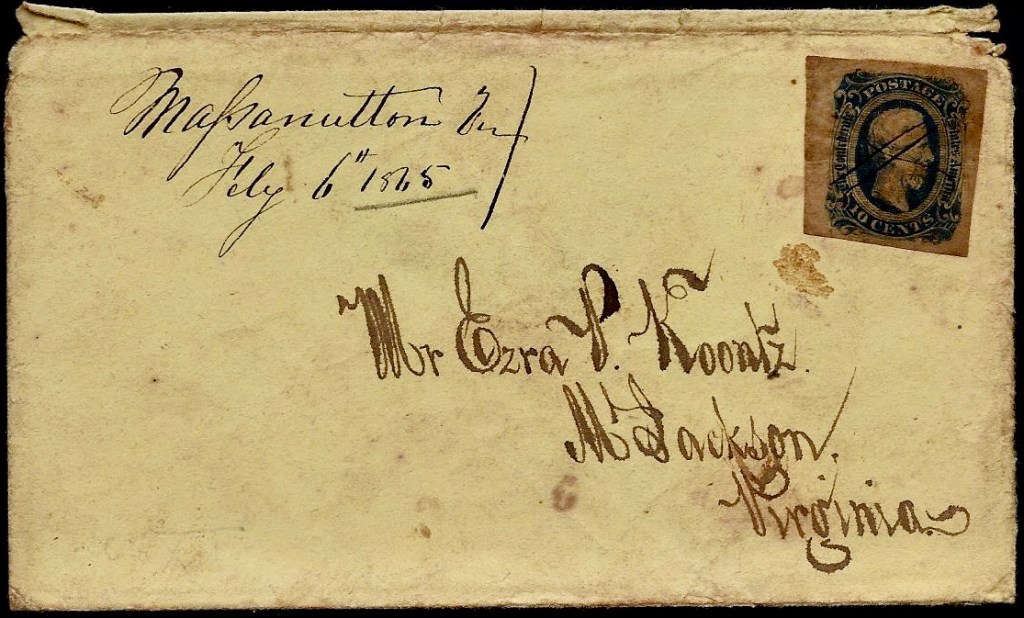 Massanutton Va
Feby 6th 1865
POSTAGE
The Confederate States of America
10 CENTS
Mr Ezra P. Koontz.
Mt Jackson,
Virginia